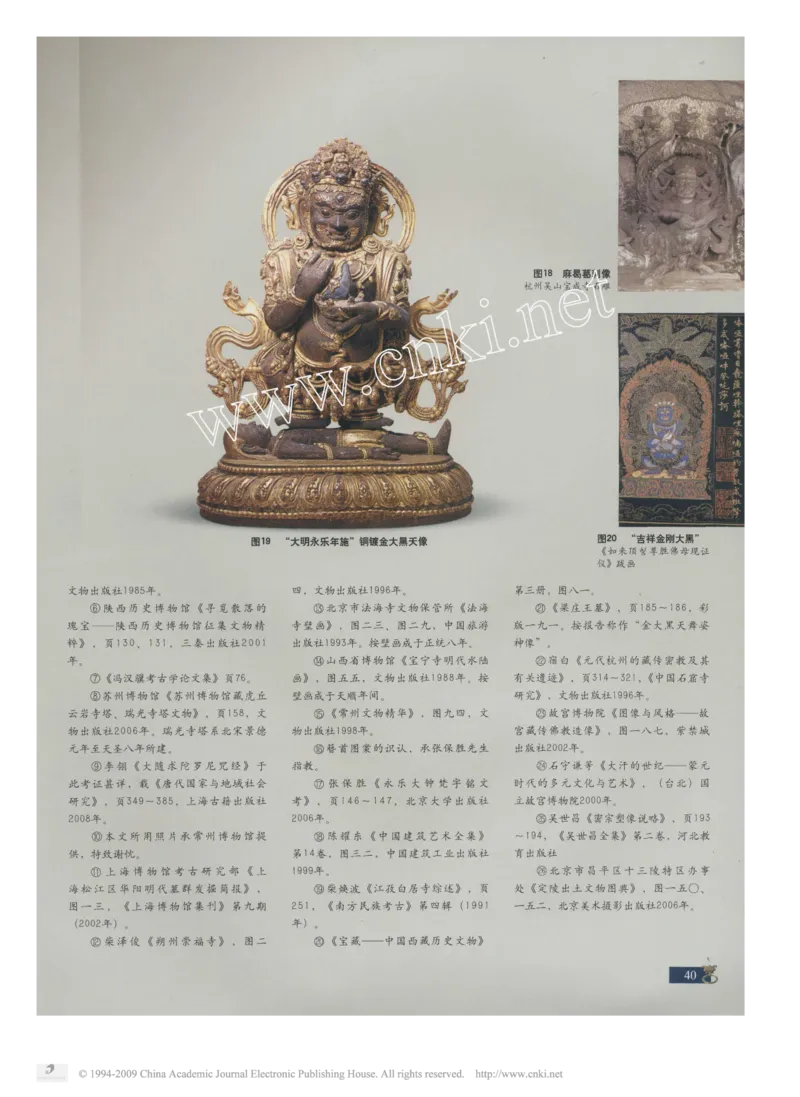 图18 麻曷葛剌像
杭州吴山宝成寺石雕
www.cnki.net
图19 “大明永乐年施”铜镀金大黑天像
图20 “吉祥金刚大黑”
《如来顶髻尊胜佛母现证
仪》跋画
文物出版社1985年。
⑥陕西历史博物馆《寻觅散落的
瑰宝——陕西历史博物馆征集文物精
粹》，页130、131，三秦出版社2001
年。
⑦《冯汉骥考古学论文集》页76。
⑧苏州博物馆《苏州博物馆藏虎丘
云岩寺塔、瑞光寺塔文物》，页158，文
物出版社2006年。瑞光寺塔系北宋景德
元年至天圣八年所建。
⑨李翎《大随求陀罗尼咒经》于
此考证甚详，载《唐代国家与地域社会
研究》，页349～385，上海古籍出版社
2008年。
⑩本文所用照片承常州博物馆提
供，特致谢忱。
⑪上海博物馆考古研究部《上
海松江区华阳明代墓群发掘简报》，
图一三，《上海博物馆集刊》第九期
（2002年）。
⑫柴泽俊《朔州崇福寺》，图二
四，文物出版社1996年。
⑬北京市法海寺文物保管所《法海
寺壁画》，图二三、图二九，中国旅游
出版社1993年。按壁画成于正统八年。
⑭山西省博物馆《宝宁寺明代水陆
画》，图五五，文物出版社1988年。按
壁画成于天顺年间。
⑮《常州文物精华》，图九四，文
物出版社1998年。
⑯簪首图案的识认，承张保胜先生
指教。
⑰张保胜《永乐大钟梵字铭文
考》，页146～147，北京大学出版社
2006年。
⑱陈耀东《中国建筑艺术全集》
第14卷，图三二，中国建筑工业出版社
1999年。
⑲柴焕波《江孜白居寺综述》，页
251，《南方民族考古》第四辑（1991
年）。
⑳《宝藏——中国西藏历史文物》
第三册，图八一。
㉑《梁庄王墓》，页185～186，彩
版一九一。按报告称作“金大黑天舞姿
神像”。
㉒宿白《元代杭州的藏传密教及其
有关遗迹》，页314～321，《中国石窟寺
研究》，文物出版社1996年。
㉓故宫博物院《图像与风格——故
宫藏传佛教造像》，图一八七，紫禁城
出版社2002年。
㉔石守谦等《大汗的世纪——蒙元
时代的多元文化与艺术》，（台北）国
立故宫博物院2000年。
㉕吴世昌《密宗塑像说略》，页193
～194，《吴世昌全集》第二卷，河北教
育出版社
㉖北京市昌平区十三陵特区办事
处《定陵出土文物图典》，图一五〇、
一五二，北京美术摄影出版社2006年。
40
© 1994-2009 China Academic Journal Electronic Publishing House. All rights reserved. http://www.cnki.net